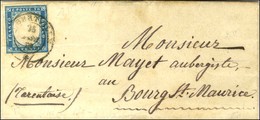 Monsieur
Monsieur Mayet aubergiste
au
(Tarentaise) Bourg St Maurice